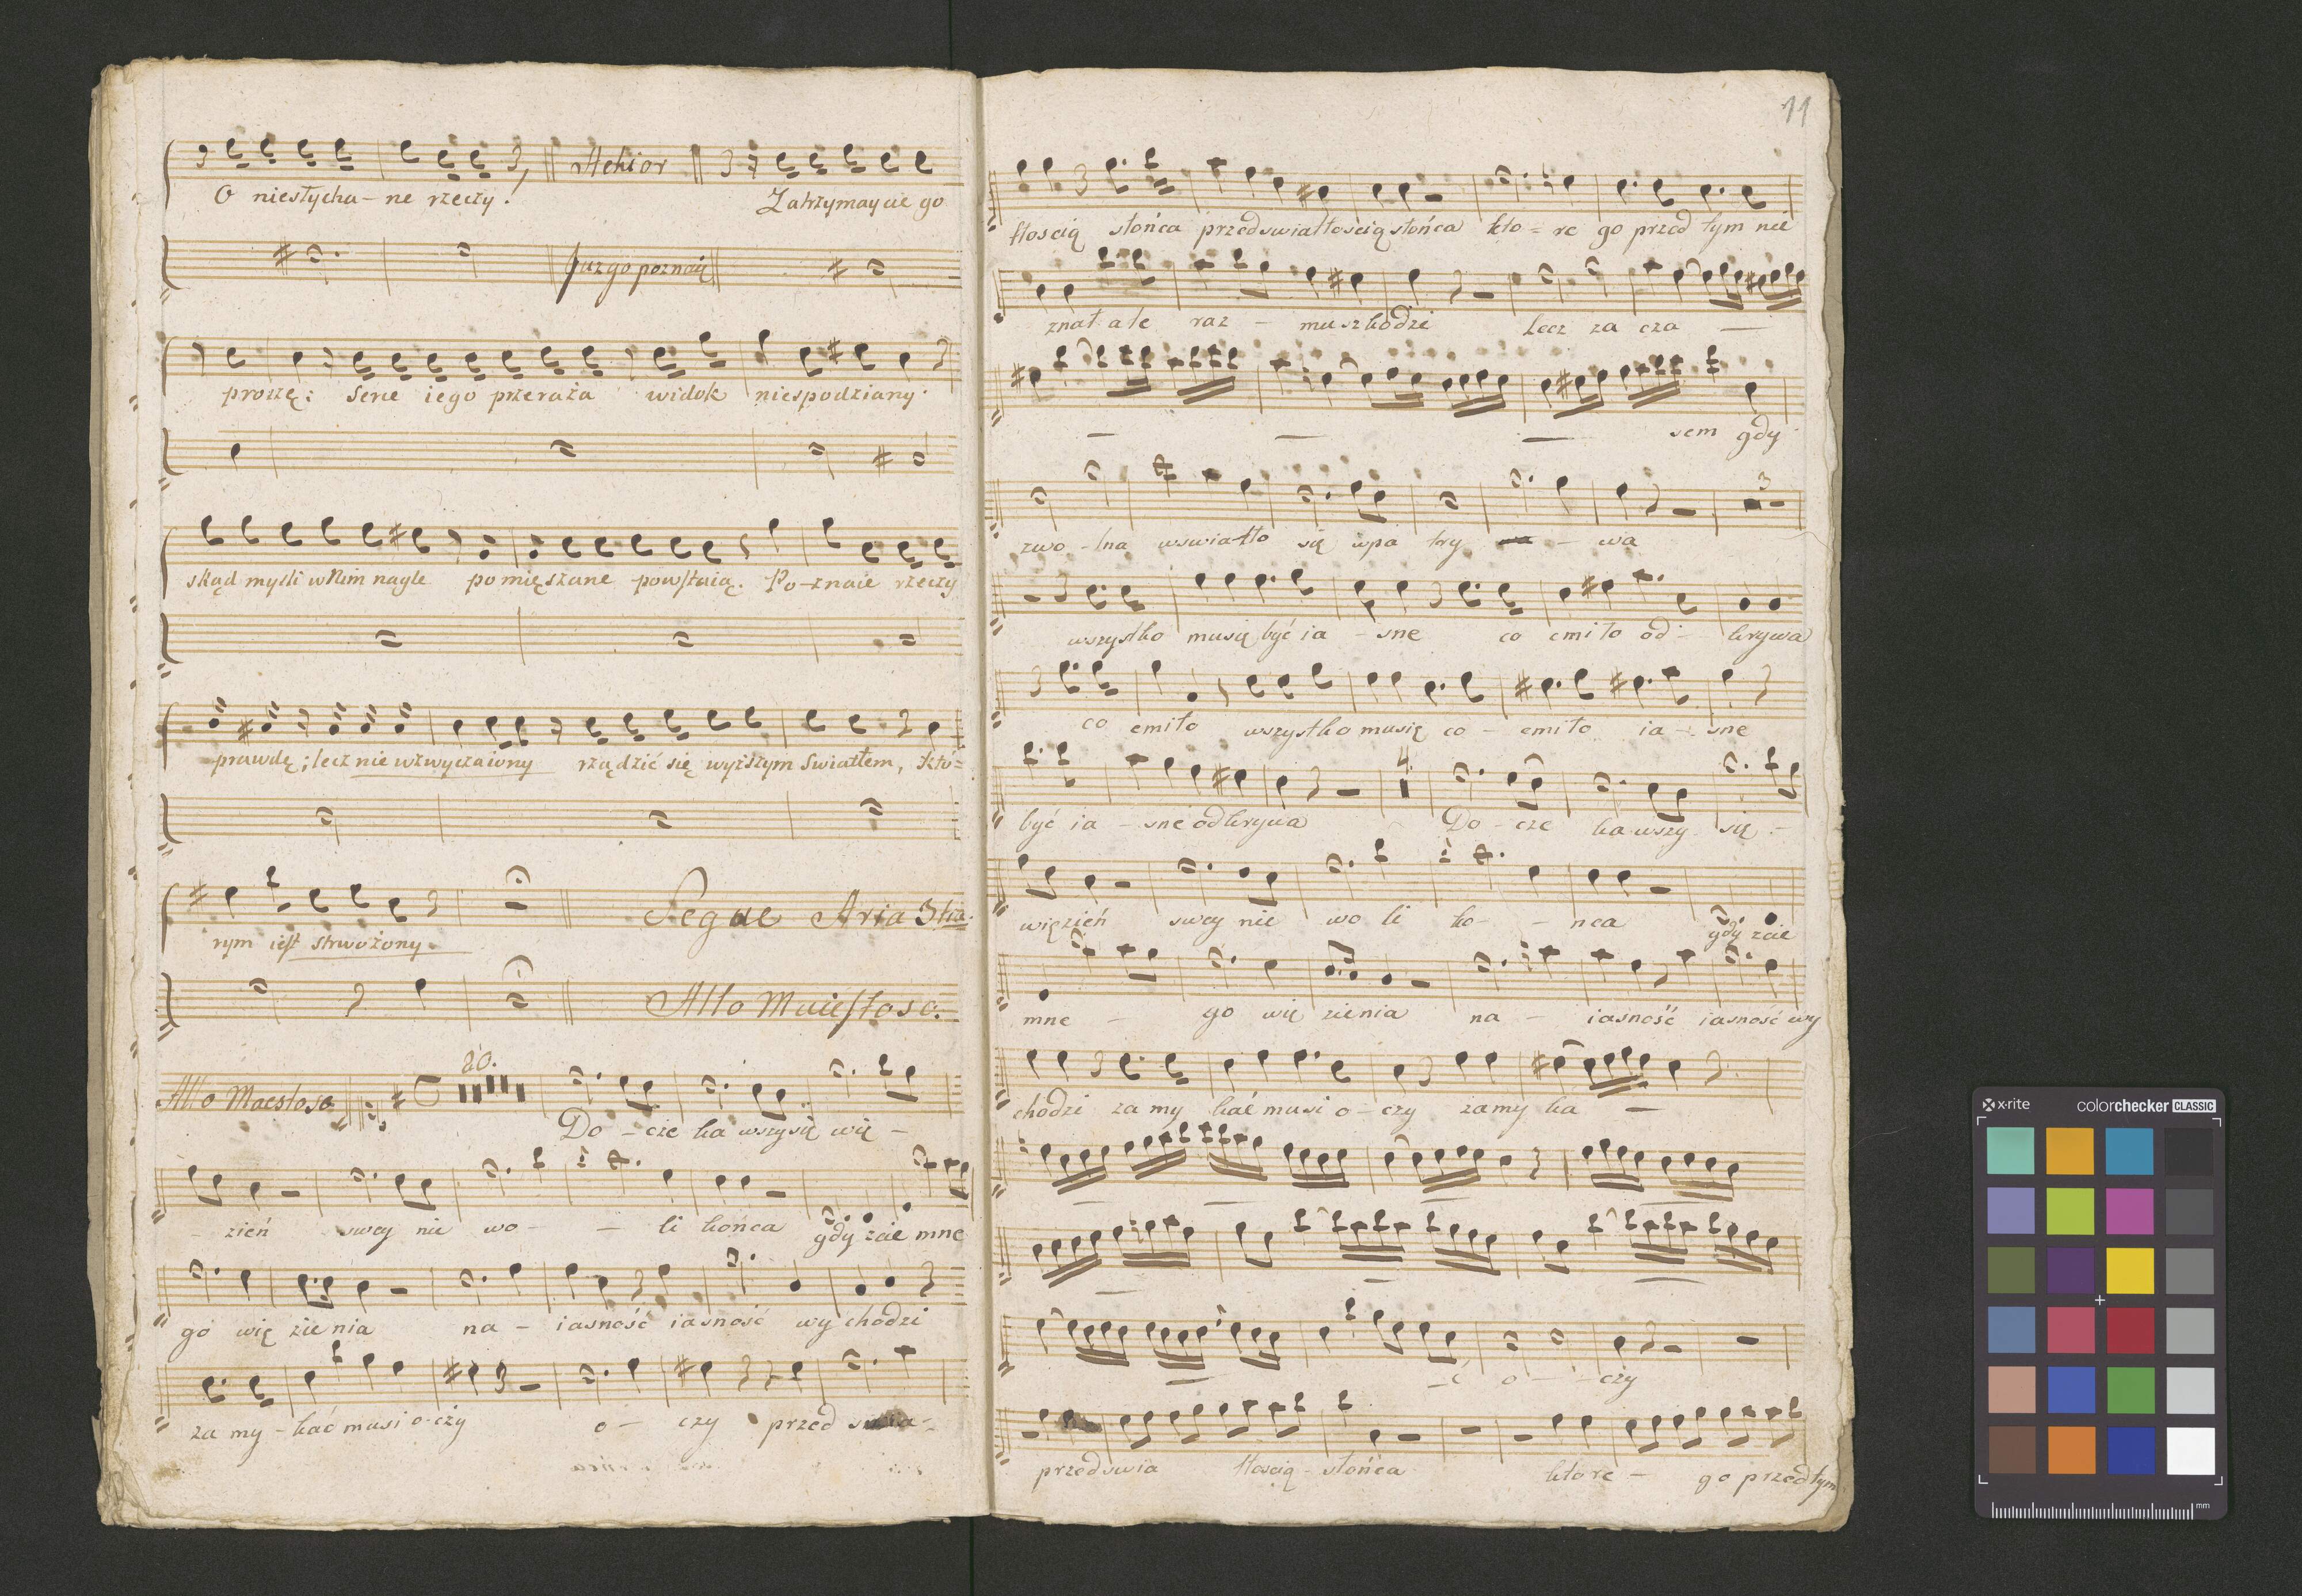 O niesłycha-ne rzeczy! Achior Zatrzymaycie go
Juz go poznaię
proszę: Serce iego przeraża widok niespodziany.
skąd myśli w Nim nagle pomięszane powstaią. Po-znaie rzeczy
prawdę; lecz nie wzwyczaiony rządzić się wyższym światłem, któ=
rym iest strwożony. Segue Aria 3tia.
Allo Maiestoso.
20.
Allo Maestoso Do-cze ka wszysię wię-
-zień swey nie wo- - li końca gdy zcie mne
go wię zienia na- iasność iasność wy chodzi
za my-kać musi o-czy o- czy przed
11
tłoscią słońca przed swiatłoscią słońca kto=re go przed tym nie
znał ale raz - mu szkodzi lecz za cza -
- - - sem gdy
3
zwo-lna w swiatło się wpa try - wa
wszystko musię być ia-sne co cmiło od- krywa
co cmiło wszystko musię co- cmiło ia- sne
4.
być ia-sne odkrywa Do-cze ka wszy się-
więzień swey nie wo li ko- -nca gdy zcie
mne - go wię zienia na- iasność iasność wy
chodzi za my kać musi o-czy zamy ka -
-ć o- -czy
przed swia tłoscią- słońca ktore- go przed tym
x-rite colorchecker CLASSIC
mm